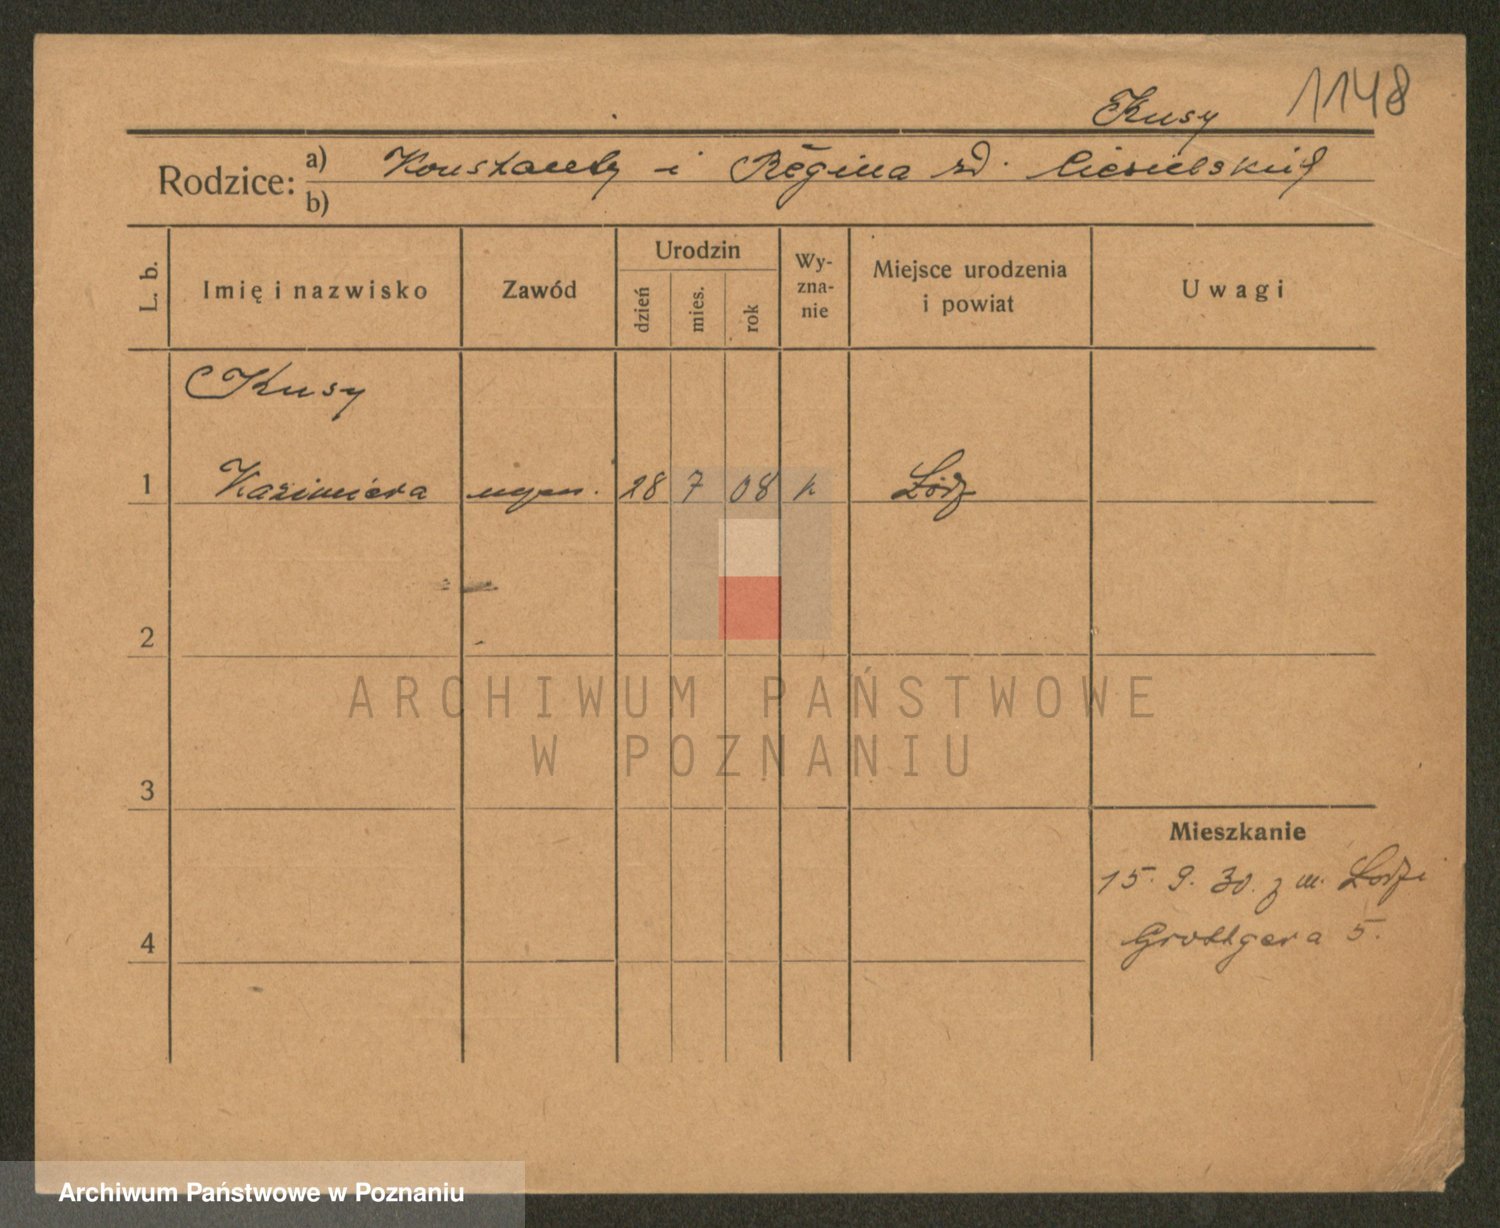 1148
Kusy
Rodzice: a) Konstanty i Regina zd. Ciesielskich
b)
L. b.
Imię i nazwisko
Zawód
Urodzin
dzień
mies.
rok
Wy-
zna-
nie
Miejsce urodzenia
i powiat
Uwagi
Kusy
1 Kazimiera 28 7 08 k Łódź
2
ARCHIWUM PAŃSTWOWE
W POZNANIU
3
Mieszkanie
15. 9. 30. z m. Łodzi
4
Grottgera 5.
Archiwum Państwowe w Poznaniu